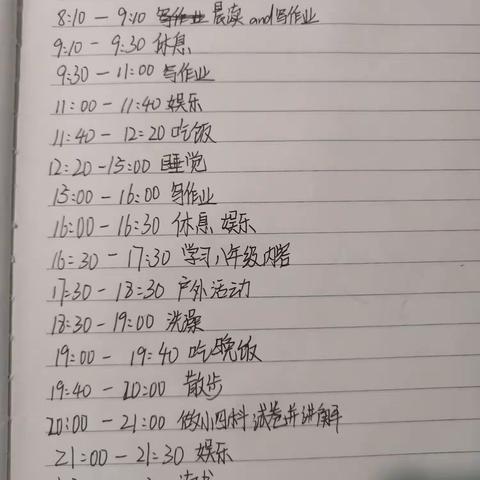 8:10 - 9:10 晨读 and 写作业
9:10 - 9:30 休息
9:30 - 11:00 写作业
11:00 - 11:40 娱乐
11:40 - 12:20 吃饭
12:20 - 15:00 睡觉
15:00 - 16:00 写作业
16:00 - 16:30 休息 娱乐
16:30 - 17:30 学习八年级内容
17:30 - 18:30 户外活动
18:30 - 19:00 洗澡
19:00 - 19:40 吃晚饭
19:40 - 20:00 散步
20:00 - 21:00 做小四科试卷并讲解
21:00 - 21:30 娱乐